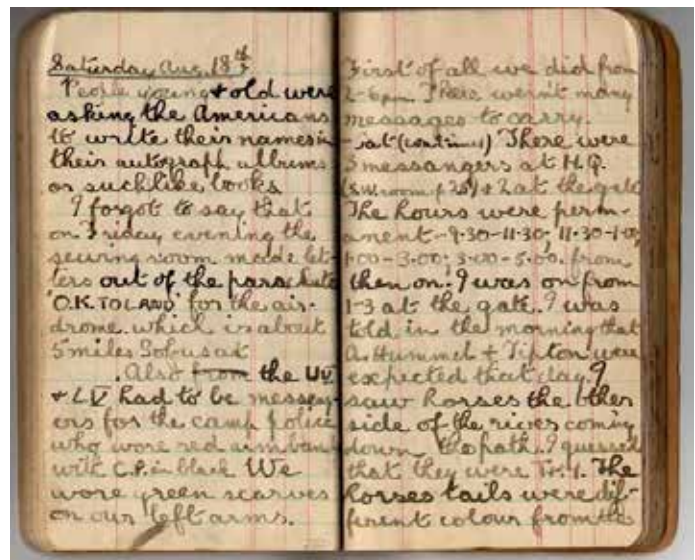 Saturday Aug. 18th
People young & old were
asking the Americans
to write their names in
their autograph albums
or suchlike books
I forgot to say that
on Friday evening the
sewing room made let-
ters out of the parachute
'O.K. TO LAND' for the air-
drome which is about
5 miles
. Also from the UV
& LV had to be messeng-
ers for the camp police
who wore red armbands
with C.P. in black We
wore green scarves
on our left arms.
First of all we did from
2-6pm. There weren't many
messages to carry.
sat (continued) There were
3 messangers at H.Q.
& 2 at the gate
The hours were perm-
anent - 9.30-11.30; 11.30-1.00;
1.00-3.00; 3.00-5.00. from
then on; I was on from
1-3 at the gate. I was
told in the morning that
A. Hummel & Tipton were
expected that day I
saw horses the other
side of the river coming
down the path. I guessed
that they were The
horses tails were dif-
ferent colour from the